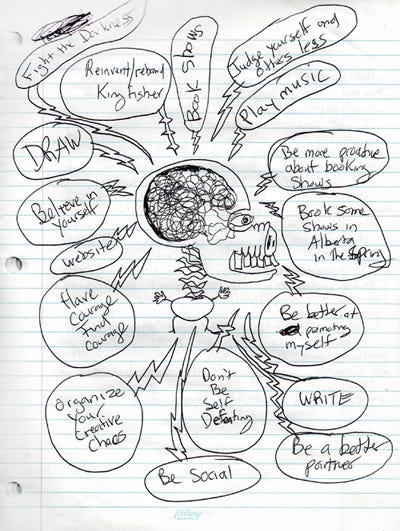 Fight the Darkness
Reinvent/rebrand
King Fisher
Book Shows
Judge yourself and
others less
Play music
DRAW
Be more proative
about booking
shows
Believe in
yourself
Book some
shows in
Alberta
in the spring
website
Have
Courage
Find
courage
Be better at
promoting
myself
Organize
your
Creative
Chaos
Don't
Be
Self
Defeating
WRITE
Be a better
partner
Be Social
Hilroy